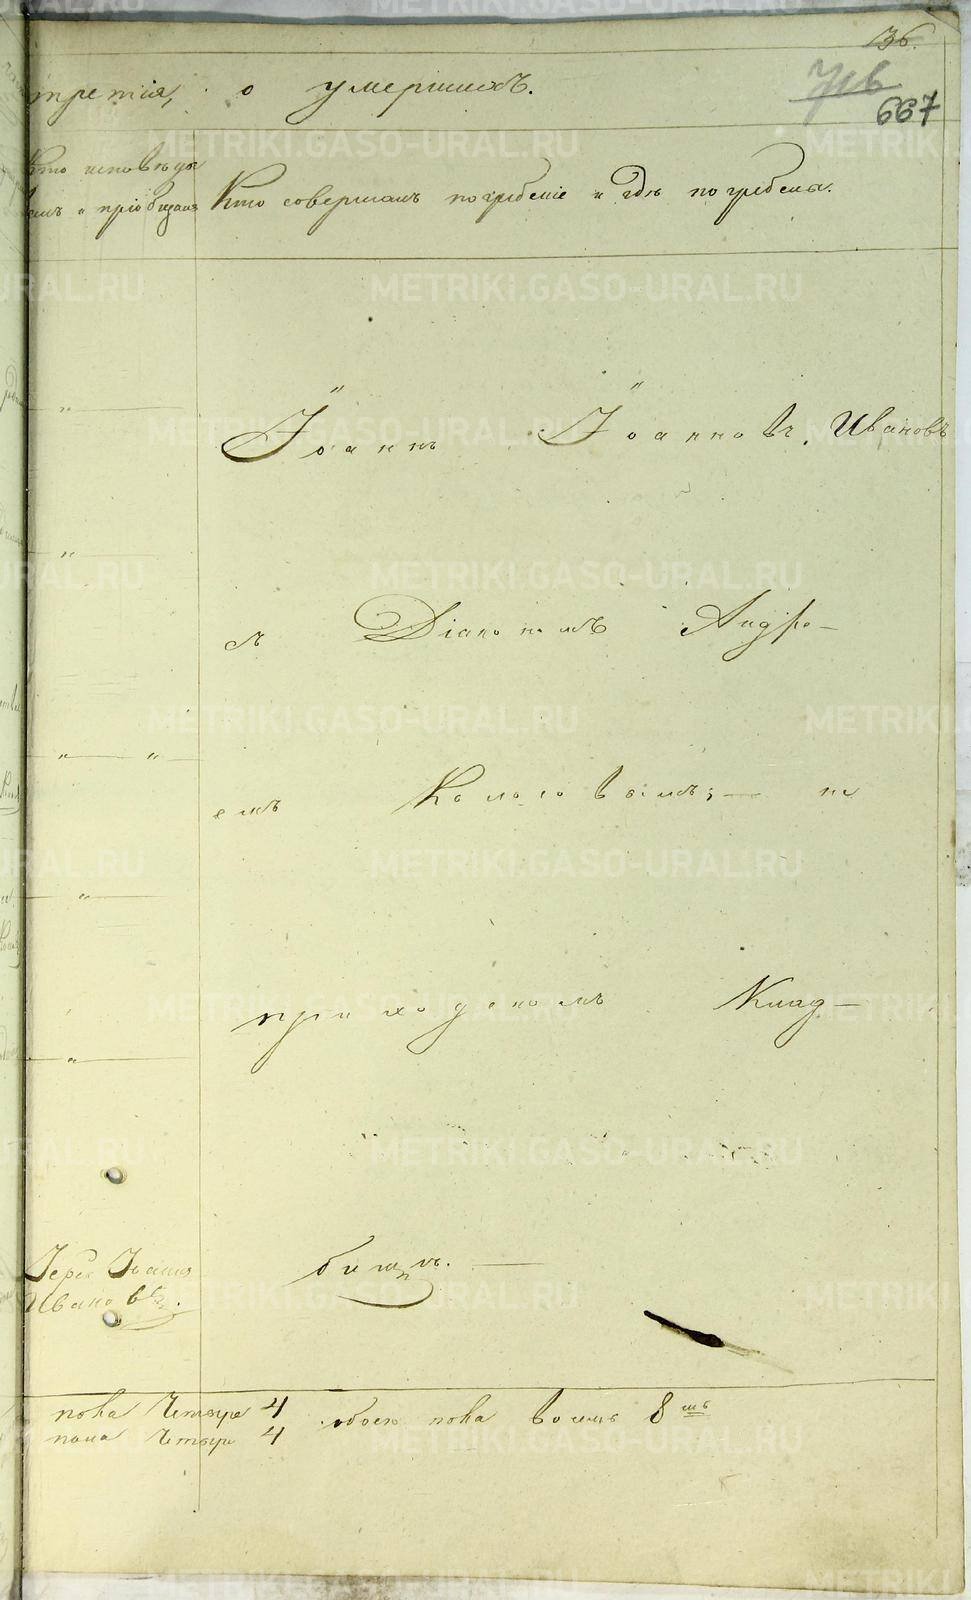 136.
667
третія, о умершихъ.
Кто исповѣды
валъ и пріобщалъ
Кто совершалъ погребеніе и гдѣ погребены.
Іоаннъ Іоанновъ Ивановъ
съ Діакономъ Андре-
емъ на
приходскомъ Клад-
Іерей Іоаннъ
Ивановъ.
бищѣ.
пола Четыре 4 обоего пола восмь 8мь
пола Четыре 4
METRIKI.GASO-URAL.RU